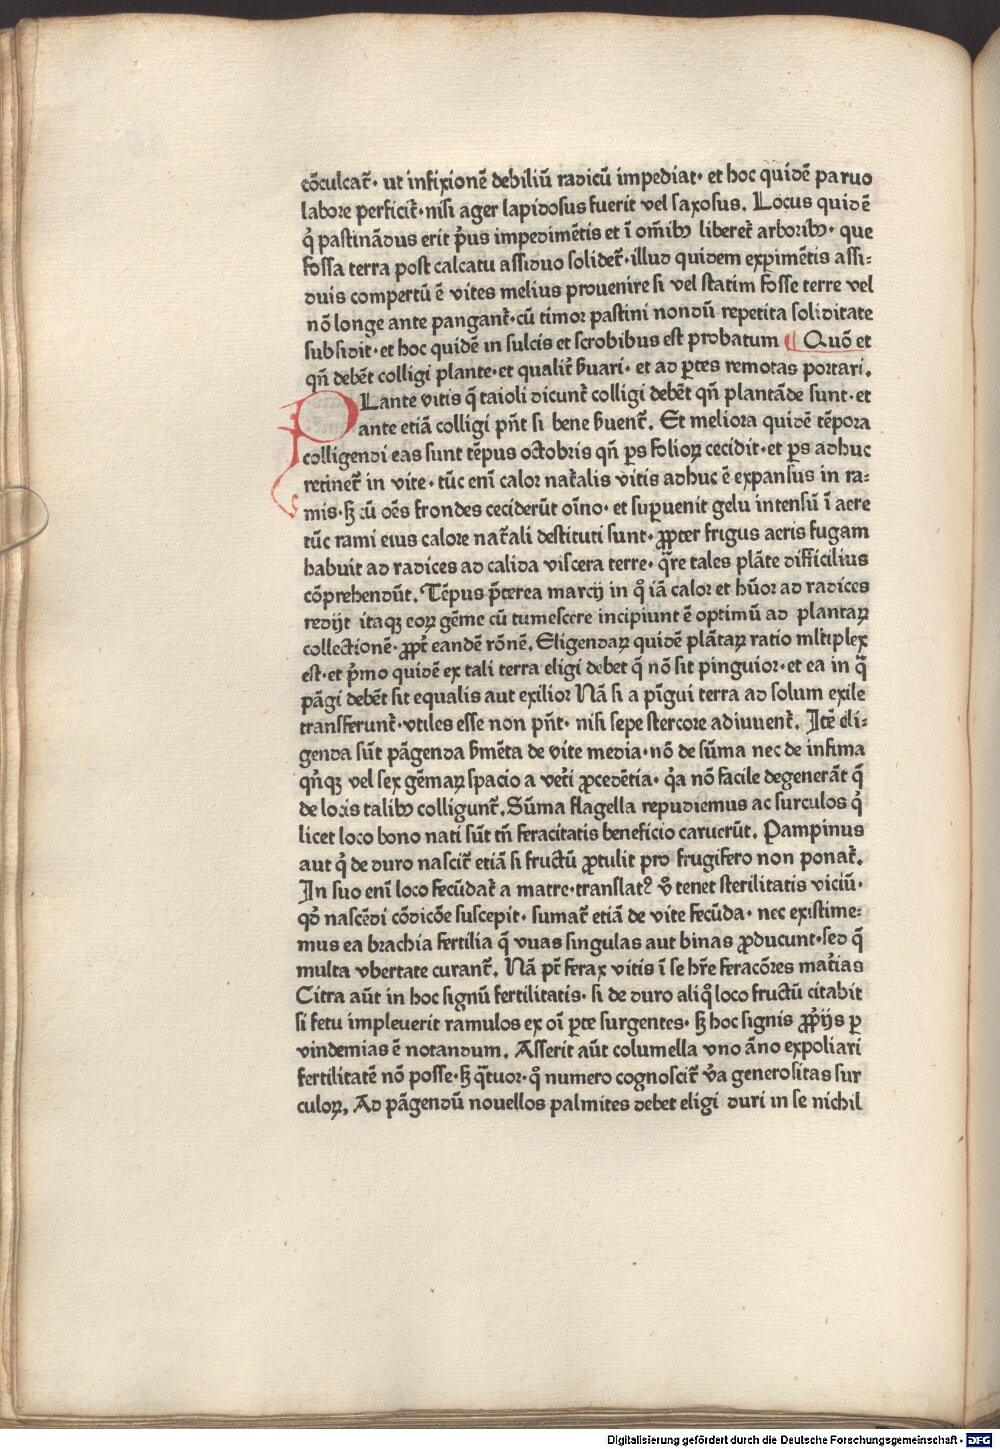 cōculcat᷑· ut infixionē debiliū radicū impediat· et hoc quidē paruo
labore perficit᷑·nisi ager lapidosus fuerit vel saxosus. Locus quidē
q̇ pastinādus erit p̄us impedimētis et ī om̄ibꝫ liberet᷑ arboribꝫ· que
fossa terra post calcatu assiduo solidet᷑·illud quidem exꝑimētis assi⸗
duis compertū ē vites melius prouenire si vel statim fosse terre vel
nō longe ante pangant᷑·cū timor pastini nondū repetita soliditate
subsidit·et hoc quidē in sulcis et scrobibus est probatum ¶ Quō et
qn̄ debēt colligi plante·et qualit᷑ b̄uari· et ad ꝑtes remotas portari.
PLante vitis q̄ taioli dicunt᷑ colligi debēt qn̄ plantāde sunt·et
ante etiā colligi pn̄t si bene b̄uent᷑. Et meliora quidē tēpora
colligendi eas sunt tēpus octobris qn̄ ꝑs folioꝝ cecidit·et ꝑs adhuc
retinet᷑ in vite· tūc enī calor nat᷑alis vitis adhuc ē expansus in ra⸗
mis·sꝫ cū oēs frondes ceciderūt oīno· et suꝑuenit gelu intensū ī aere
tūc rami eius calore nat᷑ali destituti sunt· ꝓpter frigus aeris fugam
habuit ad radices ad calida viscera terre· q̄re tales plāte difficilius
cōprehendūt. Tēpus p̄terea marcij in q̊ iā calor et hūor ad radices
redijt itaqꝫ eoꝝ gēme cū tumescere incipiunt ē optimū ad plantaꝝ
collectionē·ꝓpt᷑ eandē rōnē. Eligendaꝝ quidē plātaꝝ ratio ml̄tiplex
est·et p̄mo quidē ex tali terra eligi debet q̄ nō sit pinguior·et ea in q̄
pāgi debēt sit equalis aut exilior Nā si a pīgui terra ad solum exile
transferunt᷑·vtiles esse non pn̄t· nisi sepe stercore adiuuent᷑. Itē eli⸗
genda sūt pāgenda b̄mēta de vite media·nō de sūma nec de infima
qn̄qꝫ vel sex gēmaꝝ spacio a vet᷑i ꝓcedētia· q̇a nō facile degenerāt q̄
de locis talibꝫ colligunt᷑. Sūma flagella repudiemus ac surculos q̇
licet loco bono nati sūt tn̄ feracitatis beneficio caruerūt. Pampinus
aut q̇ de duro nascit᷑ etiā si fructū ꝓtulit pro frugifero non ponat᷑.
In suo enī loco fecūdat᷑ a matre·translatꝰ v̊ tenet sterilitatis viciū·
qd̓ nascēdi cōdicōe suscepit· sumat᷑ etiā de vite fecūda· nec existime⸗
mus ea brachia fertilia q̄ vuas singulas aut binas ꝓducunt·sed q̄
multa vbertate curant᷑. Nā pt̄ ferax vitis ī se hr̄e feracōres mat᷑ias
Citra aūt in hoc signū fertilitatis· si de duro aliq̊ loco fructū citabit
si fetu impleuerit ramulos ex oī ꝑte surgentes· sꝫ hoc signis ꝓp̓ijs ꝑ
vindemias ē notandum. Asserit aūt columella vno āno expoliari
fertilitatē nō posse·sꝫ q̄tuor·q̊ numero cognoscit᷑ v̓a generositas sur
culoꝝ. Ad pāgendū nouellos palmites debet eligi duri in se nichil
Digitalisierung gefördert durch die Deutsche Forschungsgemeinschaft - DFG